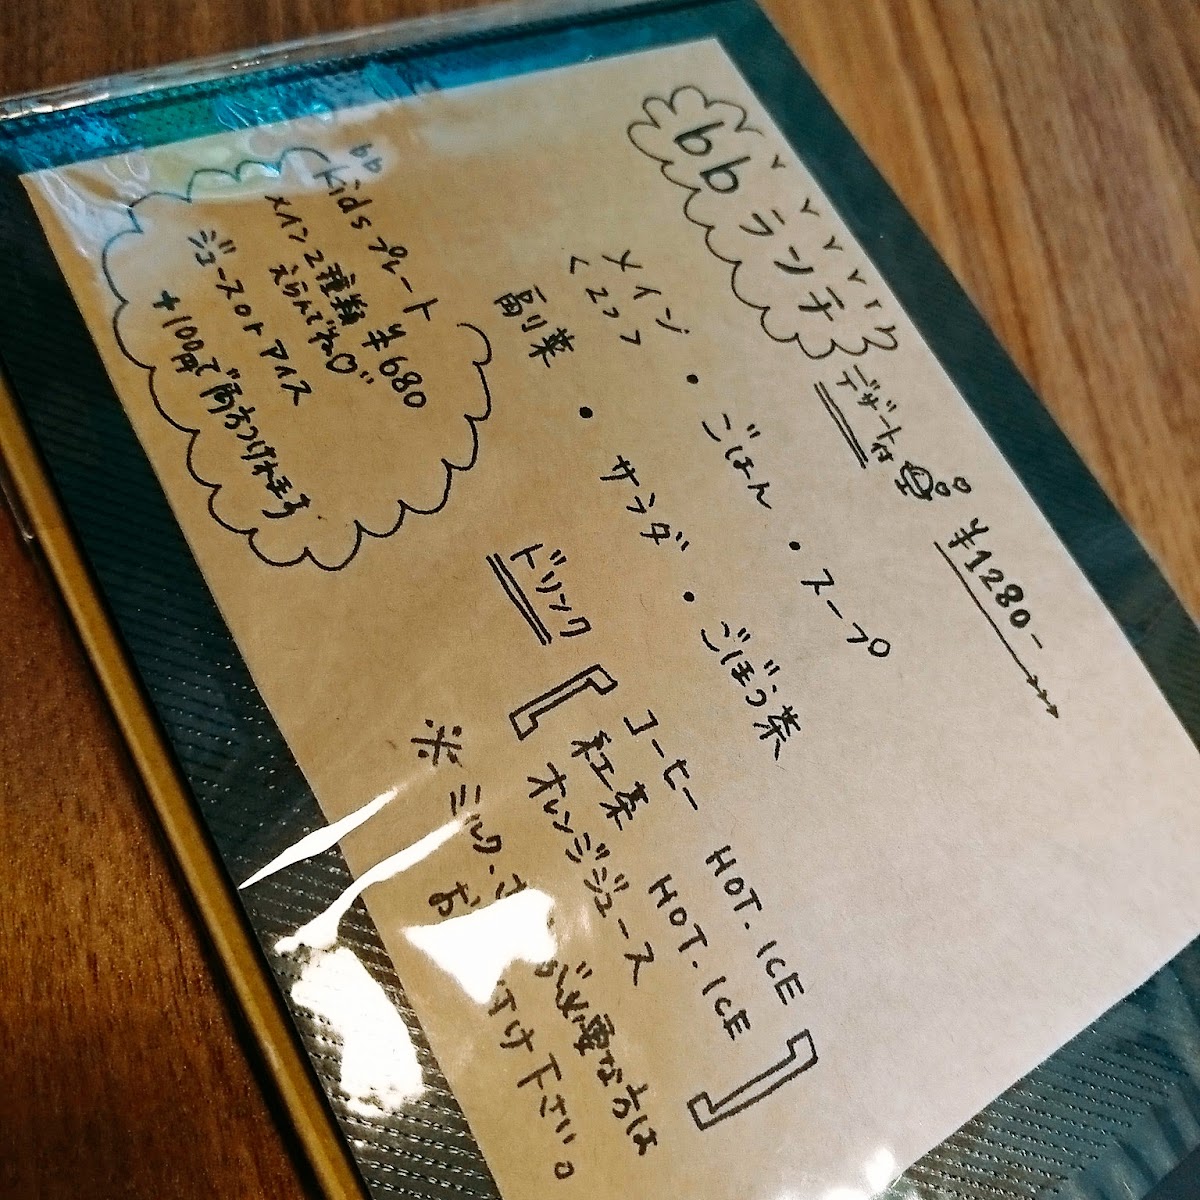 bb ランチ
デザート付
¥1280-
メイン・ごはん・スープ
<2コ>
副菜・サラダ・ごぼう茶
ドリンク
コーヒー HOT. ICE
紅茶 HOT. ICE
オレンジジュース
※ ミルク・ が必要な方は
お 付け下さい。
Kidsプレート ¥680
メイン2種類
えらんでね♡
ジュース or アイス
+100円で両方つけれます